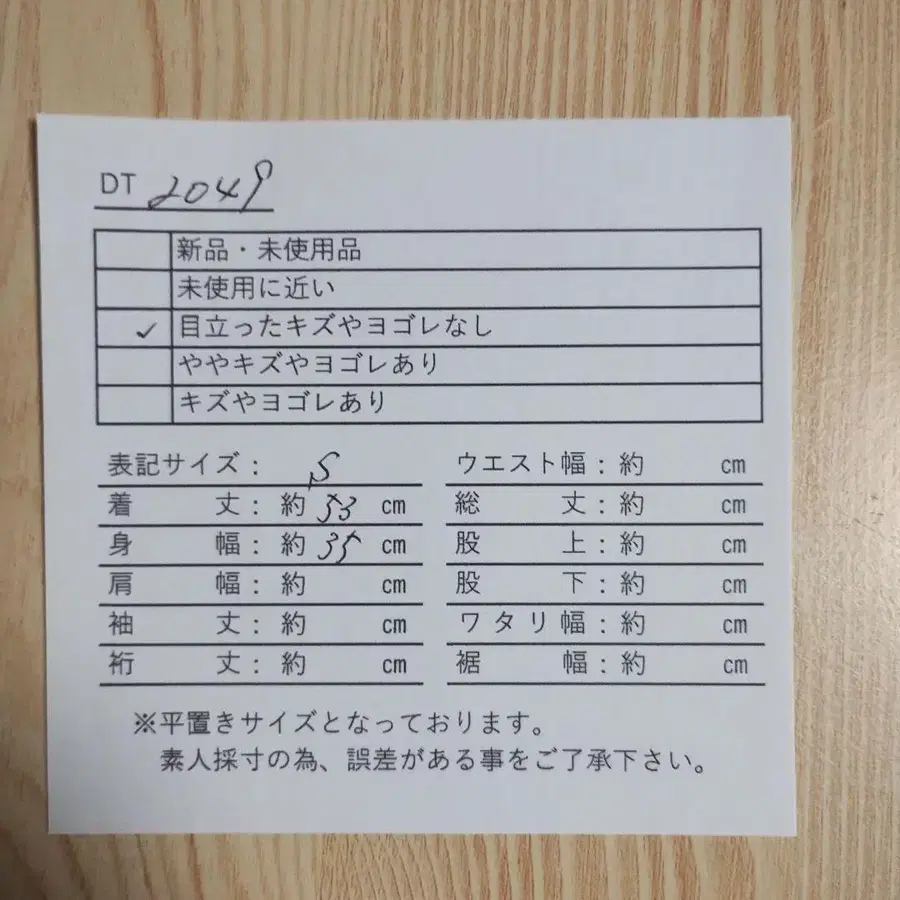 DT 2049
新品・未使用品
未使用に近い
✓ 目立ったキズやヨゴレなし
ややキズやヨゴレあり
キズやヨゴレあり
表記サイズ： S
着丈：約 53 cm
身幅：約 35 cm
肩幅：約 cm
袖丈：約 cm
裄丈：約 cm
ウエスト幅：約 cm
総丈：約 cm
股上：約 cm
股下：約 cm
ワタリ幅：約 cm
裾幅：約 cm
※平置きサイズとなっております。
素人採寸の為、誤差がある事をご了承下さい。